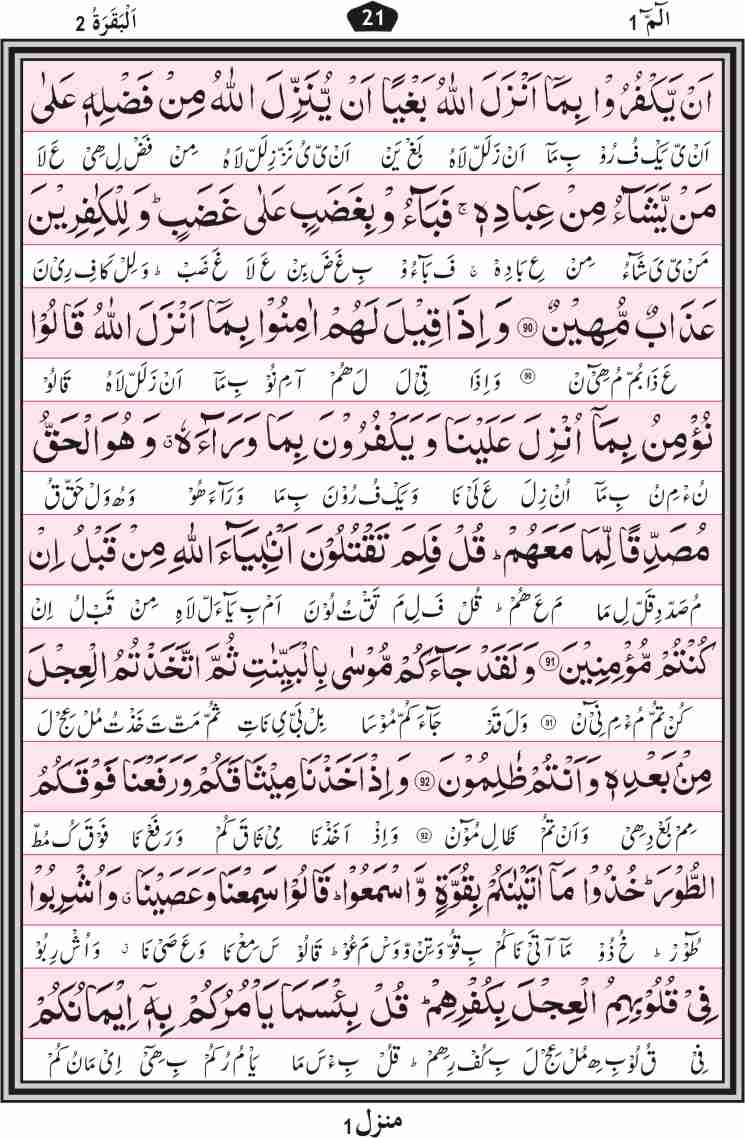 الٓمّٓ 1
21
اَلْبَقَرَةُ 2
اَنْ يَّكْفُرُوْا بِمَآ اَنْزَلَ اللّٰهُ بَغْيًا اَنْ يُّنَزِّلَ اللّٰهُ مِنْ فَضْلِهٖ عَلٰى
اَنْ یْ یَکْ فُ رُوْ بِ مَآ اَنْ زَلَلّ لَاہُ بَغْ یَنْ اَنْ یْ یُ نَزْ زِلَلّ لَاہُ مِنْ فَضْ لِ ھِیْ عَ لَا
مَنْ يَّشَآءُ مِنْ عِبَادِهٖ ۚ فَبَآءُوْ بِغَضَبٍ عَلٰى غَضَبٍ ؕ وَ لِلْكٰفِرِيْنَ
مَنْ یْ یَ شَآءُ مِنْ عِ بَادِہٖ ۚ فَ بَآءُوْ بِ غَ ضَ بِنْ عَ لَا غَ ضَبْ ؕ وَ لِلْ کَافِ رِیْ نَ
عَذَابٌ مُّهِيْنٌ ۝90 وَ اِذَا قِيْلَ لَهُمْ اٰمِنُوْا بِمَآ اَنْزَلَ اللّٰهُ قَالُوْا
عَ ذَابُمْ مُ ھِیْٓنْ ۝90 وَ اِذَا قِیْ لَ لَ ھُمْ آ مِ نُوْ بِ مَآ اَنْ زَلَلّ لَاہُ قَالُوْ
نُؤْمِنُ بِمَآ اُنْزِلَ عَلَيْنَا وَ يَكْفُرُوْنَ بِمَا وَرَآءَهٗ ۗ وَ هُوَ الْحَقُّ
نُءْ مِ نُ بِ مَآ اُنْ زِ لَ عَ لَیْ نَا وَ یَکْ فُ رُوْ نَ بِ مَا وَ رَآءَ ھُوْ وَ ھُ وَلْ حَقّ قُ
مُصَدِّقًا لِّمَا مَعَهُمْ ؕ قُلْ فَلِمَ تَقْتُلُوْنَ اَنْۢبِيَآءَ اللّٰهِ مِنْ قَبْلُ اِنْ
مُ صَدّ دِ قَلّ لِ مَا مَ عَ ھُمْ ؕ قُلْ فَ لِ مَ تَقْ تُ لُوْنَ اَمْ بِ یَآءَلّ لَاہِ مِنْ قَبْ لُ اِنْ
كُنْتُمْ مُّؤْمِنِيْنَ ۝91 وَ لَقَدْ جَآءَكُمْ مُّوْسٰى بِالْبَيِّنٰتِ ثُمَّ اتَّخَذْتُمُ الْعِجْلَ
کُنْ تُمْ مُ ءْ مِ نِیْٓنْ ۝91 وَ لَ قَدْ جَآءَ کُمْ مُوْسَا بِلْ بَیْ یِ نَاتِ ثُمّ مَتّ تَ خَذْ تُ مُلْ عِجْ لَ
مِنْۢ بَعْدِهٖ وَ اَنْتُمْ ظٰلِمُوْنَ ۝92 وَ اِذْ اَخَذْنَا مِيْثَاقَكُمْ وَ رَفَعْنَا فَوْقَكُمُ
مِمْ بَعْ دِھِیْ وَ اَنْ تُمْ ظَالِ مُوْٓنْ ۝92 وَ اِذْ اَ خَذْ نَا مِیْ ثَا قَ کُمْ وَ رَ فَعْ نَا فَوْ قَ کُ مُطّ
الطُّوْرَ ؕ خُذُوْا مَآ اٰتَيْنٰكُمْ بِقُوَّةٍ وَّ اسْمَعُوْا ؕ قَالُوْا سَمِعْنَا وَ عَصَيْنَا ۗ وَ اُشْرِبُوْا
طُوْٓرْ ؕ خُ ذُوْ مَآ آتَیْ نَا کُمْ بِ قُوّ وَ تِنْ وَّ وَسْ مَ عُوْ ؕ قَالُوْ سَ مِعْ نَا وَ عَ صَیْ نَا ۗ وَ اُشْ رِ بُوْ
فِيْ قُلُوْبِهِمُ الْعِجْلَ بِكُفْرِهِمْ ؕ قُلْ بِئْسَمَا يَاْمُرُكُمْ بِهٖٓ اِيْمَانُكُمْ
فِیْ قُ لُوْ بِ ھِ مُلْ عِجْ لَ بِ کُفْ رِ ھِمْ ؕ قُلْ بِ ءْ سَ مَا یَاْ مُ رُ کُمْ بِ ھِیْٓ اِیْ مَانُ کُمْ
منزل 1